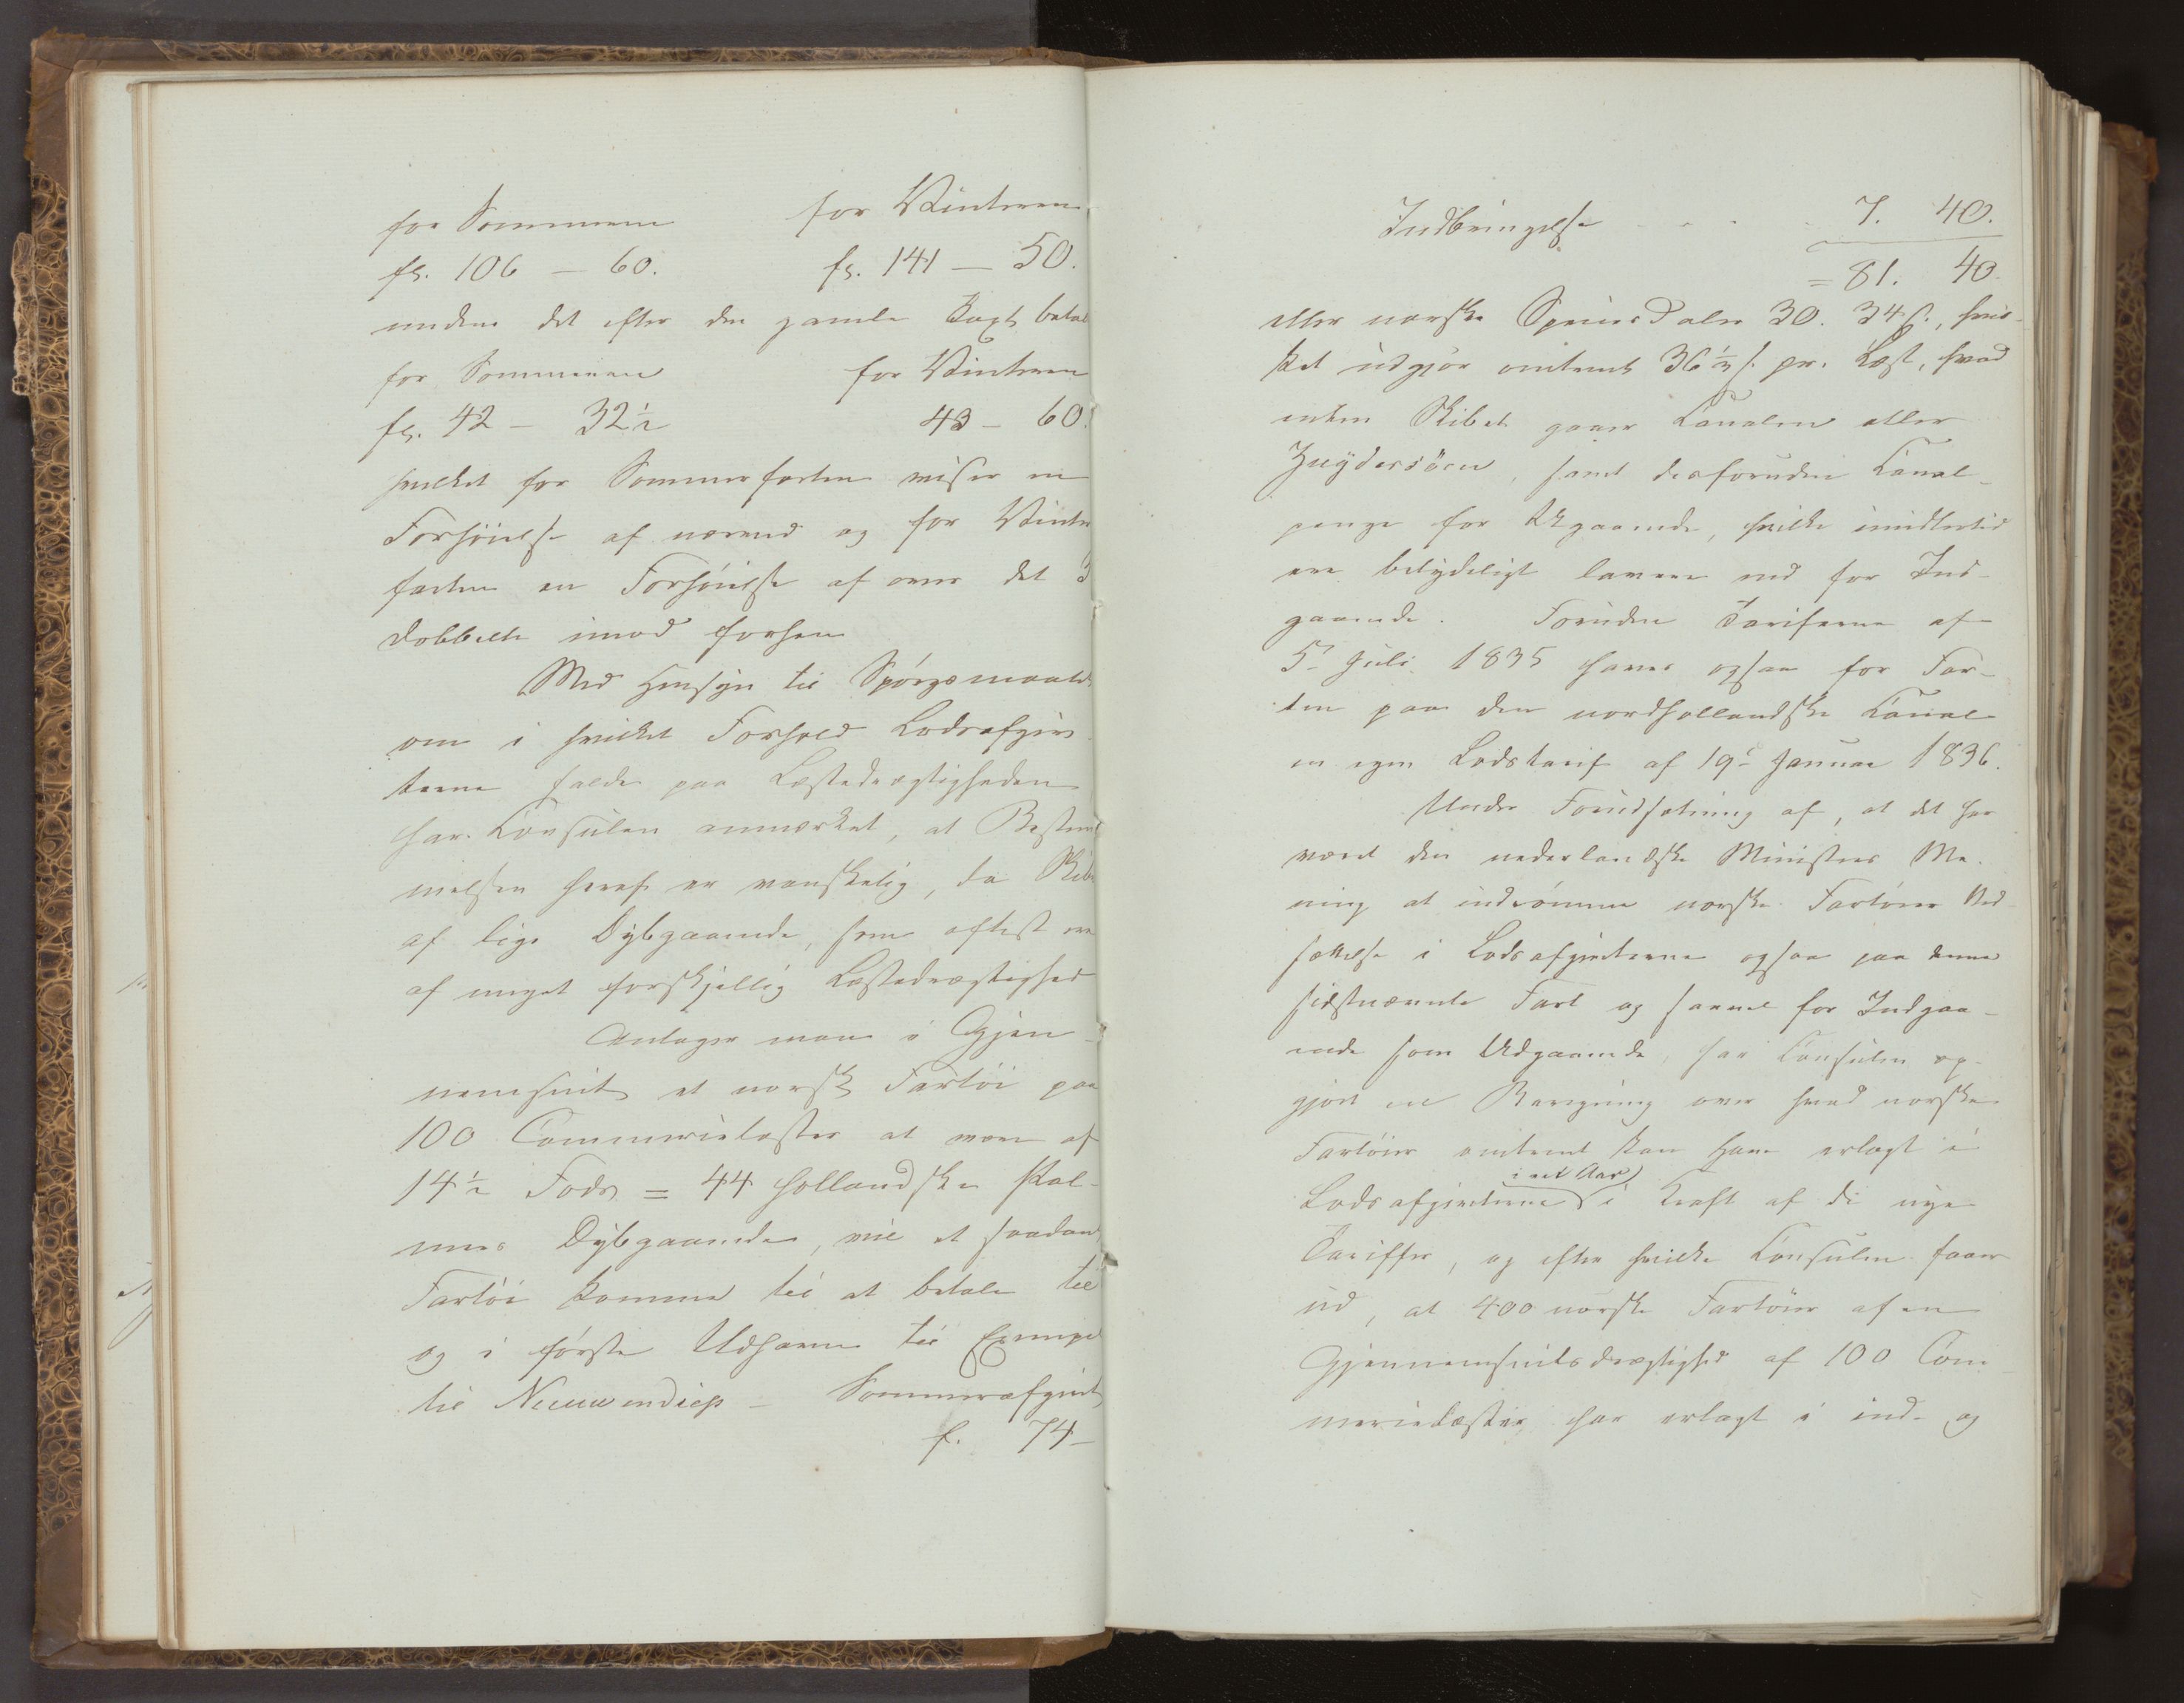 for Sommeren for Vinteren
fl. 106 – 60. fl. 141 – 50.
medens det efter den gamle Taxt betal
for Sommeren for Vinteren
fl. 42 – 32½ 43 – 60.
hvilket for Sommerfarten viser en
Forhöielse af og for Vinter
farten en Forhöielse af over det 3
dobbelte imod forhen
Med Hensyn til Spörgsmaalet
om i hvilket Forhold Lodsafgif
terne falde paa Læstedrægtigheden
har Consulen anmærket, at Bestem
melsen heraf er vanskelig, da Skibe
af lige Dybgaaende, som oftest ere
af meget forskjellig Læstedrægtighed
Antager man i Gjen-
nemsnit et norsk Fartöi paa
100 Commercelæster at være af
14½ Fods = 44 hollandske Pal-
mers Dybgaaende, vil et saadant
Fartöi komme til at betale til
og i förste Udhavn til Exempel
til Nieuwendiep – Sommerafgift
f. 74–
Indbringelse - - - 7. 40.
= 81. 40
eller norske Speciesdaler 30. 34 ß., hvil-
ket udgjör omtrent 36½ ß. pr. Læst, hvad
enten Skibet gaaer Canalen eller
Zuydersöen, samt desforuden Canal-
penge for Udgaaende, hvilke imidlertid
ere betydeligt lavere end for Ind-
gaaende. Foruden Tarifferne af
5te Juli 1835 haves ogsaa for Far-
ten paa den nordhollandske Canal
en egen Lodstarif af 19de Januar 1836.
Under Forudsætning af, at det har
været den nederlandske Ministers Me-
ning at indrömme norske Fartöier Ned-
sættelse i Lodsafgifterne ogsaa paa denne
sidstnævnte Fart og saavel for Indgaa-
ende som Udgaaende, har Consulen op-
gjort en Beregning over hvad norske
Fartöier omtrent kan have erlagt i
i et Aar
Lodsafgifterne i Kraft af de nye
Tariffer, og efter hvilke Consulen faaer
ud, at 400 norske Fartöier af en
Gjennemsnitsdrægtighed af 100 Com-
mercelæster har erlagt i ind- og